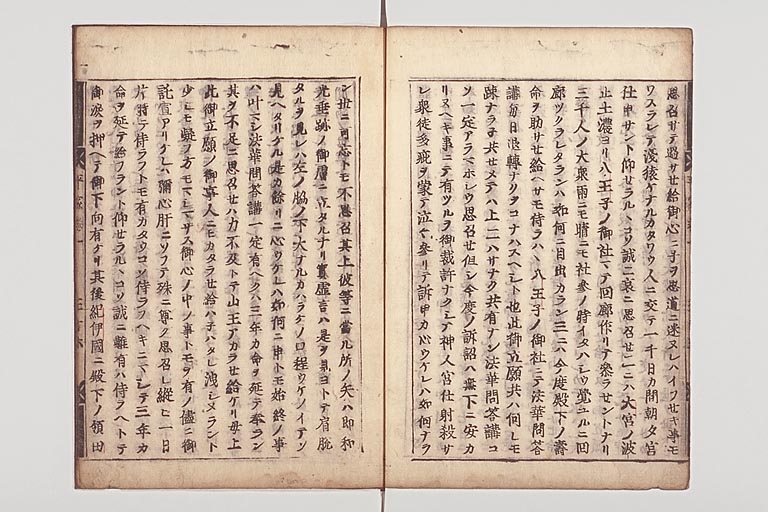 思召サテ過サセ給御心ニ子ヲ思道ニ迷ヌレハイフセキ事モ
ワスレテ浅猿ケナルカタワウ人ニ交テ一千日カ間朝夕宮
仕申サント仰セラルヽコソ誠ニ哀ニ思召セ二ニハ大宮ノ波
止土濃ヨリ八王子ノ御社マテ回廊作リテ参ラセントナリ
三千人ノ大衆雨ニモ晴ニモ社参ノ時イタハシウ覚ユルニ回
廊ツクラレタランハ如何ニ目出カラン三ニハ今度殿下ノ壽
命ヲ助サセ給ヘサモ侍ラハヽ八王子ノ御社ニテ法華問答
講毎日退轉ナクヲコナハスヘシト也此御立願共ハ何レモ
疎ナラ子共セメテハ上二ハサナク共有ナン法華問答講コ
ソ一定アラマホシウ思召セ但シ今度ノ訴訟ハ無下ニ安カ
リヌヘキ事ニテ有ツルヲ御裁許ナクシテ神人宮仕射殺サ
レ衆徒多疵ヲ蒙テ泣々参リテ訴申カ心ウケレハ如何ナラ
ン世ニ可忘トモ不思召其上彼等ニ當ル所ノ矢ハ即和
光垂跡ノ御膚ニ立タルナリ實虚言ハ是ヲ見ヨトテ肩脱
タルヲ見レハ左ノ脇ノ下大ナルカハラケノ口程ウケノイテソ
見ヘタリケル是カ餘リニ心ウケレハ如何ニ申トモ始終ノ事
ハ叶マシ法華問答講一定有ヘクハ三年カ命ヲ延テ奉ラン
其ヲ不足ニ思召セハ力不及トテ山王アカラセ給ケリ母上
此御立願ノ御事人ニモカタラセ給ハ子ハタレ洩シヌラント
少シモ疑フ方モマシマサス御心ノ中ノ事トモヲ有ノ儘ニ御
託宣アリケレハ彌心肝ニソフテ殊ニ尊ク思召シ縦ヒ一日
片時ニテ侍ラフトモ有カタウコソ侍ラフヘキニマシテ三年カ
命ヲ延テ給フラント仰セラルヽコソ誠ニ難有ハ侍ラヘトテ
御涙ヲ押ヘテ御下向有ケリ其後紀伊國ニ殿下ノ領田